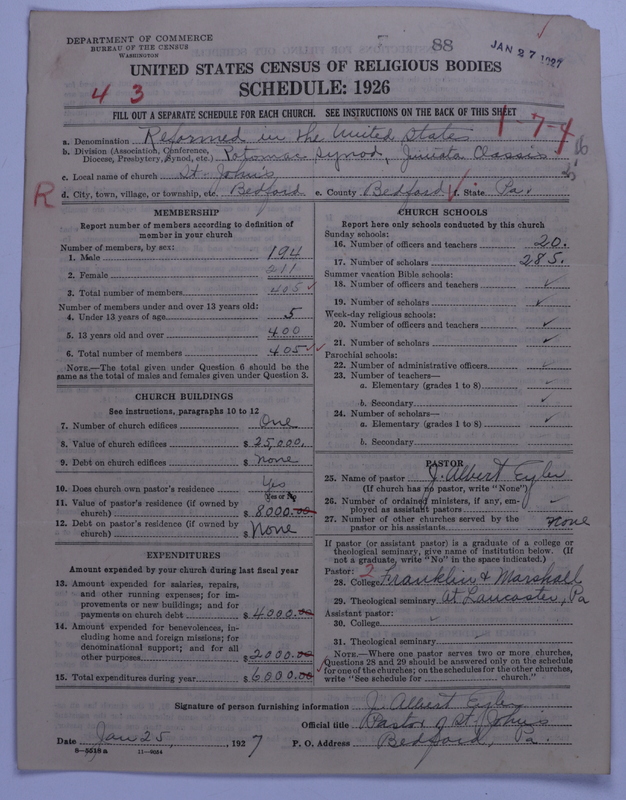 DEPARTMENT OF COMMERCE
BUREAU OF THE CENSUS
WASHINGTON
88
JAN 27 1927
UNITED STATES CENSUS OF RELIGIOUS BODIES
SCHEDULE: 1926
4 3
FILL OUT A SEPARATE SCHEDULE FOR EACH CHURCH. SEE INSTRUCTIONS ON THE BACK OF THIS SHEET
1-7-4
a. Denomination Reformed in the United States
b. Division (Association, Conference, Diocese, Presbytery, Synod, etc.) Potomac Synod, Juniata Classis
c. Local name of church St. John's
R
d. City, town, village, or township, etc. Bedford e. County Bedford f. State Pa.
MEMBERSHIP
Report number of members according to definition of
member in your church
Number of members, by sex:
1. Male 194
2. Female 211
3. Total number of members 405 ✓
Number of members under and over 13 years old:
4. Under 13 years of age 5
5. 13 years old and over 400
6. Total number of members 405 ✓✓
NOTE.—The total given under Question 6 should be the
same as the total of males and females given under Question 3.
CHURCH BUILDINGS
See instructions, paragraphs 10 to 12
7. Number of church edifices One
8. Value of church edifices $ 25,000.
9. Debt on church edifices $ None
10. Does church own pastor's residence Yes
Yes or No
11. Value of pastor's residence (if owned by
church) $ 8000.00
12. Debt on pastor's residence (if owned by
church) $ None
EXPENDITURES
Amount expended by your church during last fiscal year
13. Amount expended for salaries, repairs,
and other running expenses; for im-
provements or new buildings; and for
payments on church debt $ 4000.00
14. Amount expended for benevolences, in-
cluding home and foreign missions; for
denominational support; and for all
other purposes $ 2000.00
15. Total expenditures during year $ 6000.00 ✓
CHURCH SCHOOLS
Report here only schools conducted by this church
Sunday schools:
16. Number of officers and teachers 20.
17. Number of scholars 285.
Summer vacation Bible schools:
18. Number of officers and teachers ✓
19. Number of scholars ✓
Week-day religious schools:
20. Number of officers and teachers ✓
21. Number of scholars ✓
Parochial schools:
22. Number of administrative officers ✓
23. Number of teachers—
a. Elementary (grades 1 to 8) ✓
b. Secondary ✓
24. Number of scholars—
a. Elementary (grades 1 to 8) ✓
b. Secondary
PASTOR
25. Name of pastor J. Albert Eyler
(If church has no pastor, write "None")
26. Number of ordained ministers, if any, em-
ployed as assistant pastors ✓
27. Number of other churches served by the
pastor or his assistants None
If pastor (or assistant pastor) is a graduate of a college or
theological seminary, give name of institution below. (If
not a graduate, write "No" in the space indicated.)
Pastor: 2
28. College Franklin & Marshall
29. Theological seminary At Lancaster, Pa
Assistant pastor:
30. College
31. Theological seminary
NOTE.—Where one pastor serves two or more churches,
Questions 28 and 29 should be answered only on the schedule
for one of the churches; on the schedules for the other churches,
write "See schedule for church."
Signature of person furnishing information J. Albert Eyler
Official title Pastor of St. John's
Date Jan 25, 1927 P. O. Address Bedford, Pa.
8—5518 a 11—9054